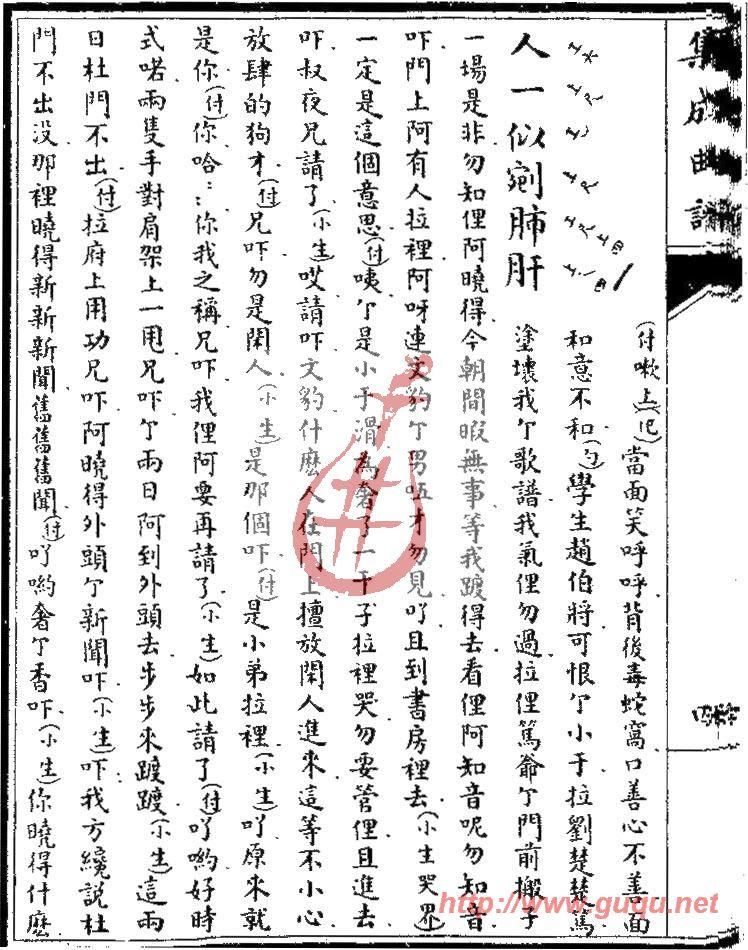 集成曲譜
人一似剜肺肝
(付嗽上)當面笑呼呼背後毒蛇窩口善心不善面
和意不和(白)學生趙伯將可恨亇小于拉劉楚楚篤
塗壞我亇歌譜我氣俚勿過拉俚篤爺亇門前搬子
一場是非勿知俚阿曉得今朝閒暇無事等我踱得去看俚阿知音呢勿知音
吓門上阿有人拉裡阿呀連文豹亇男𠵽才勿見吖且到書房裡去(小生哭界)
一定是這個意思(付)咦亇是小于滑為奢了一干子拉裡哭勿要管俚且進去
吓叔夜兄請了(小生)哎請吓文豹什麼人在門上擅放閑人進來這等不小心
放肆的狗才(付)兄吓勿是閑人(小生)是那個吓(付)是小弟拉裡(小生)吖原來就
是你(付)你哈〻〻你我之稱兄吓我俚阿要再請了(小生)如此請了(付)吖喲好時
式喏兩隻手對肩架上一甩兄吓亇兩日阿到外頭去步步來踱踱(小生)這兩
日杜門不出(付)拉府上用功兄吓阿曉得外頭亇新聞吓(小生)吓我方纔說杜
門不出没那裡曉得新新新聞舊舊舊聞(付)吖喲奢亇香吓(小生)你曉得什麼
http://www.guqu.net